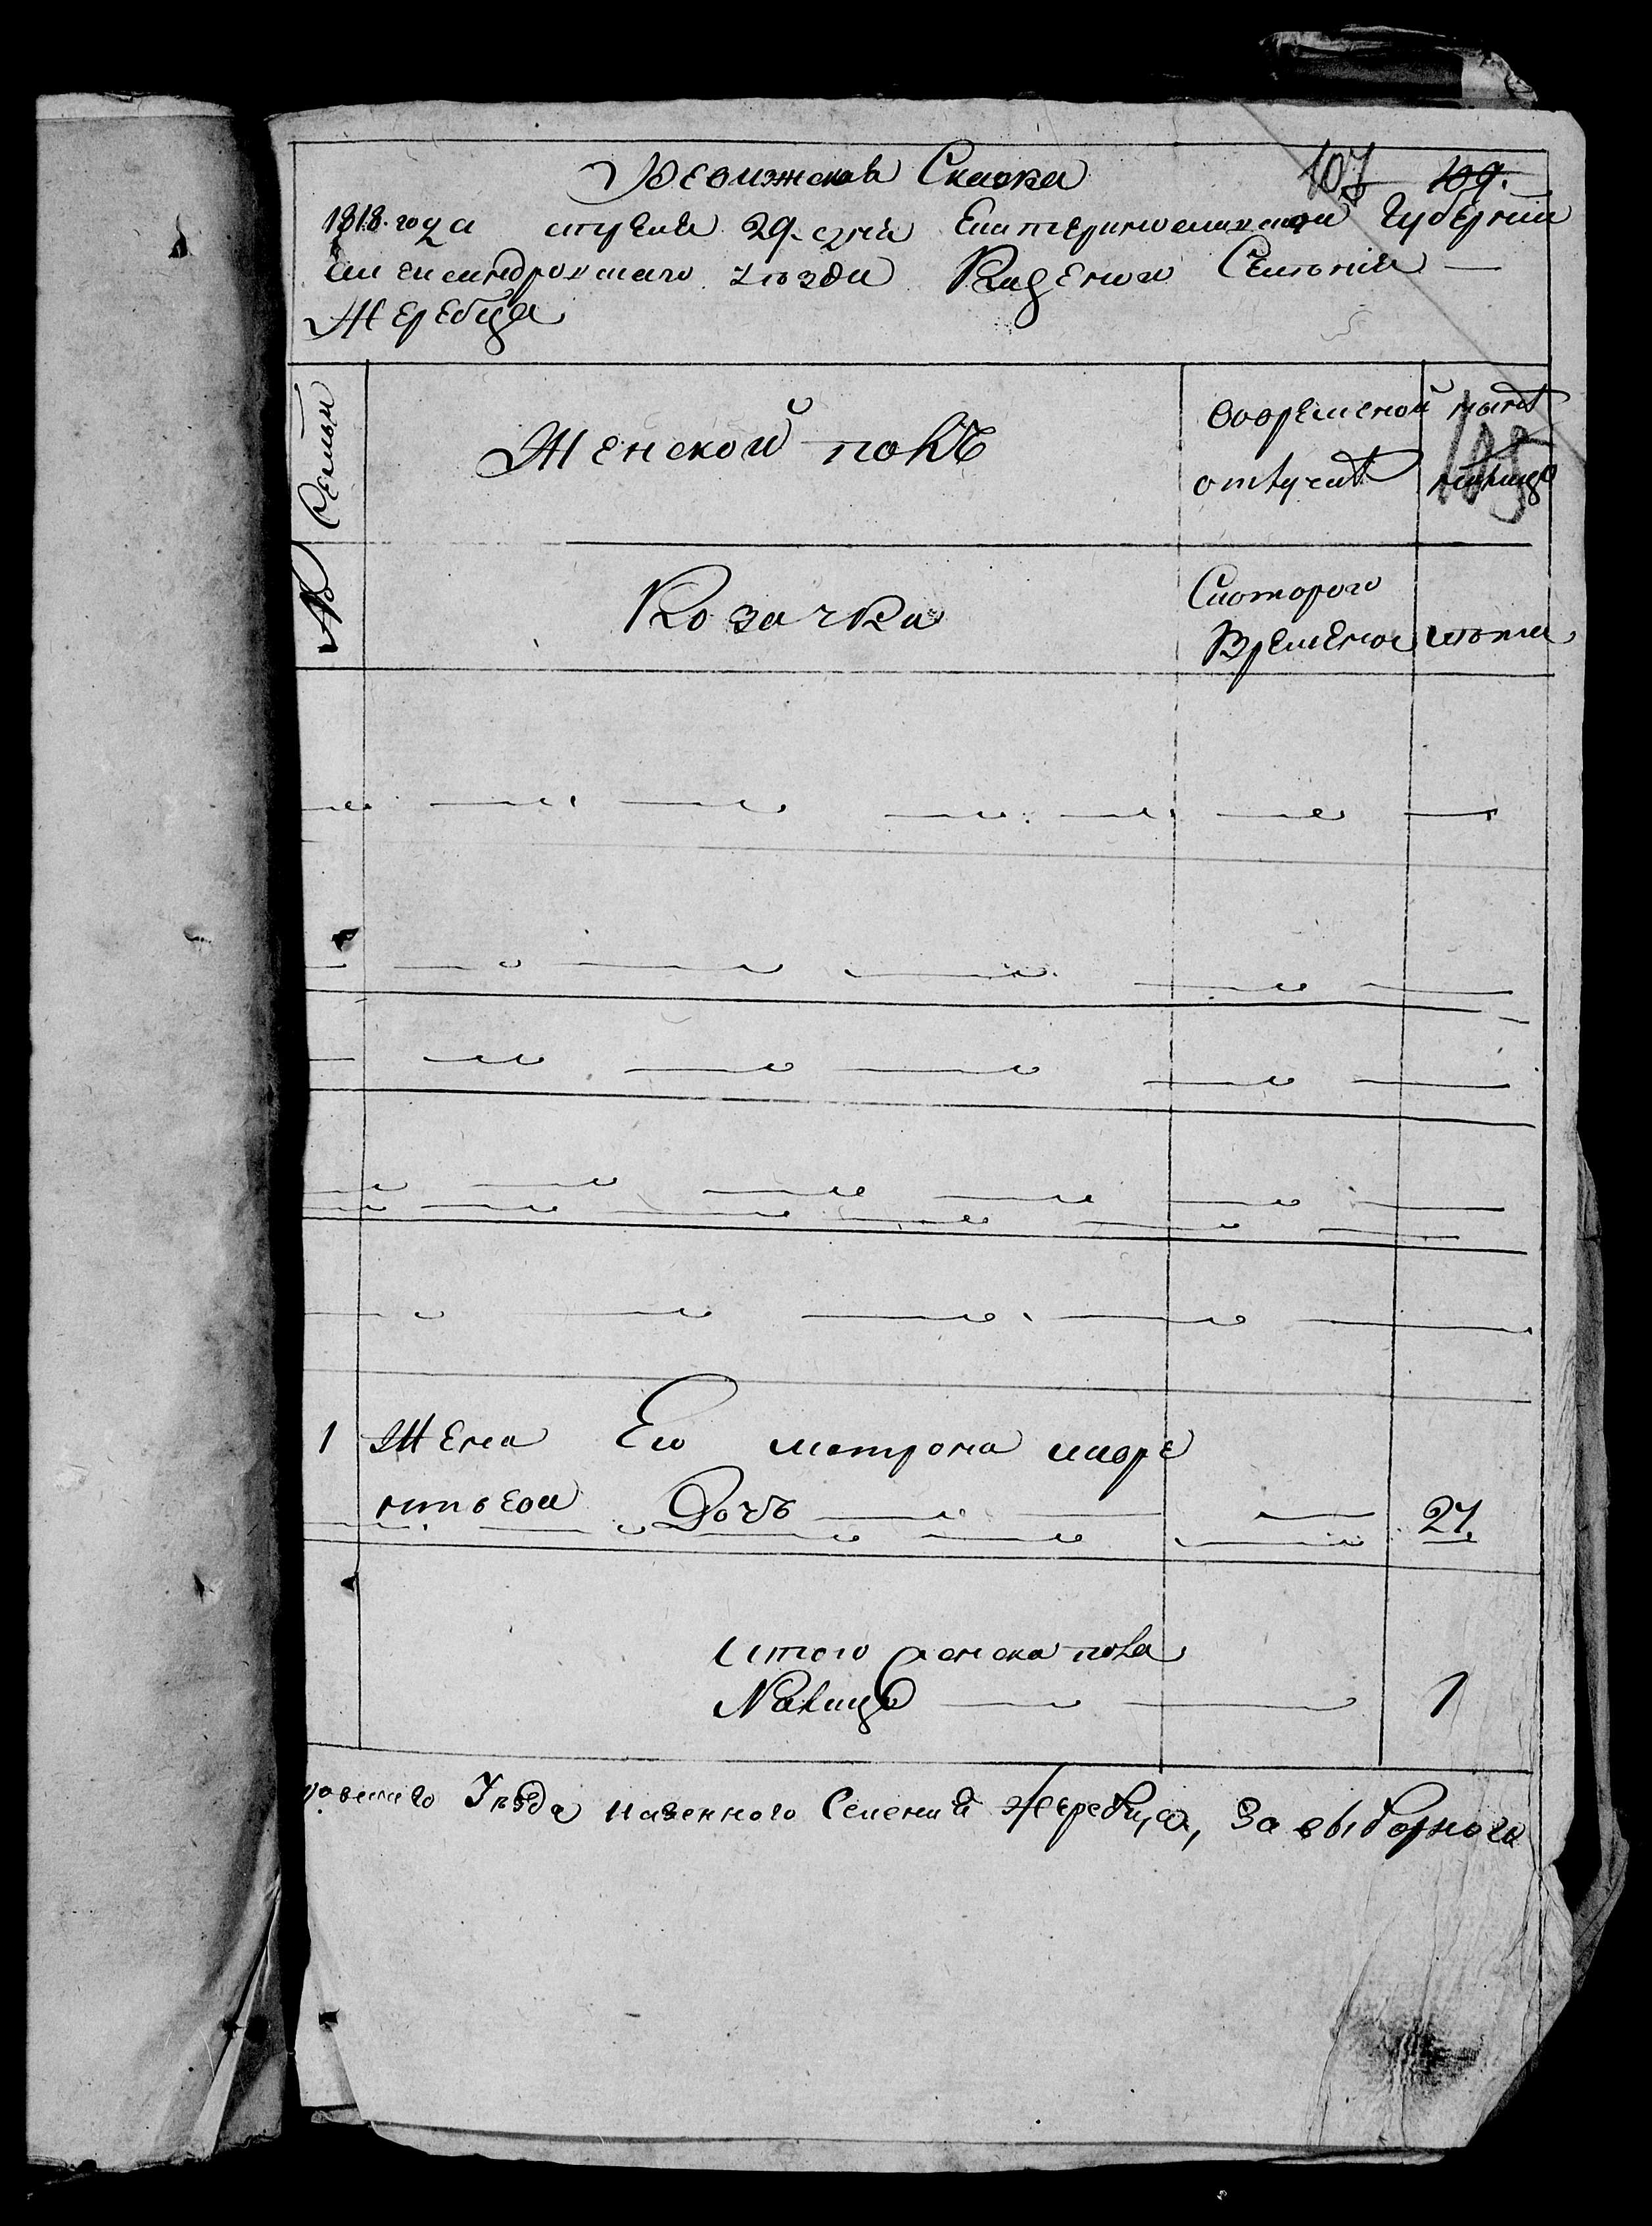 Ревижская Скаска 107 109.
1818. года апреля 29. дня Екатеринославской Губерний
Александровскаго уюзда Казенога Селения —
Жеребца
№ Семьи
Женской полъ
вовременой отлучат
ныне налицо
105
Козачка
Скоторого Времени
лета
1 Жена Его матрона
Дочь 27
Итого женска пола
Налицо 1
Уезда казенного Селений Жеребца, За выборного